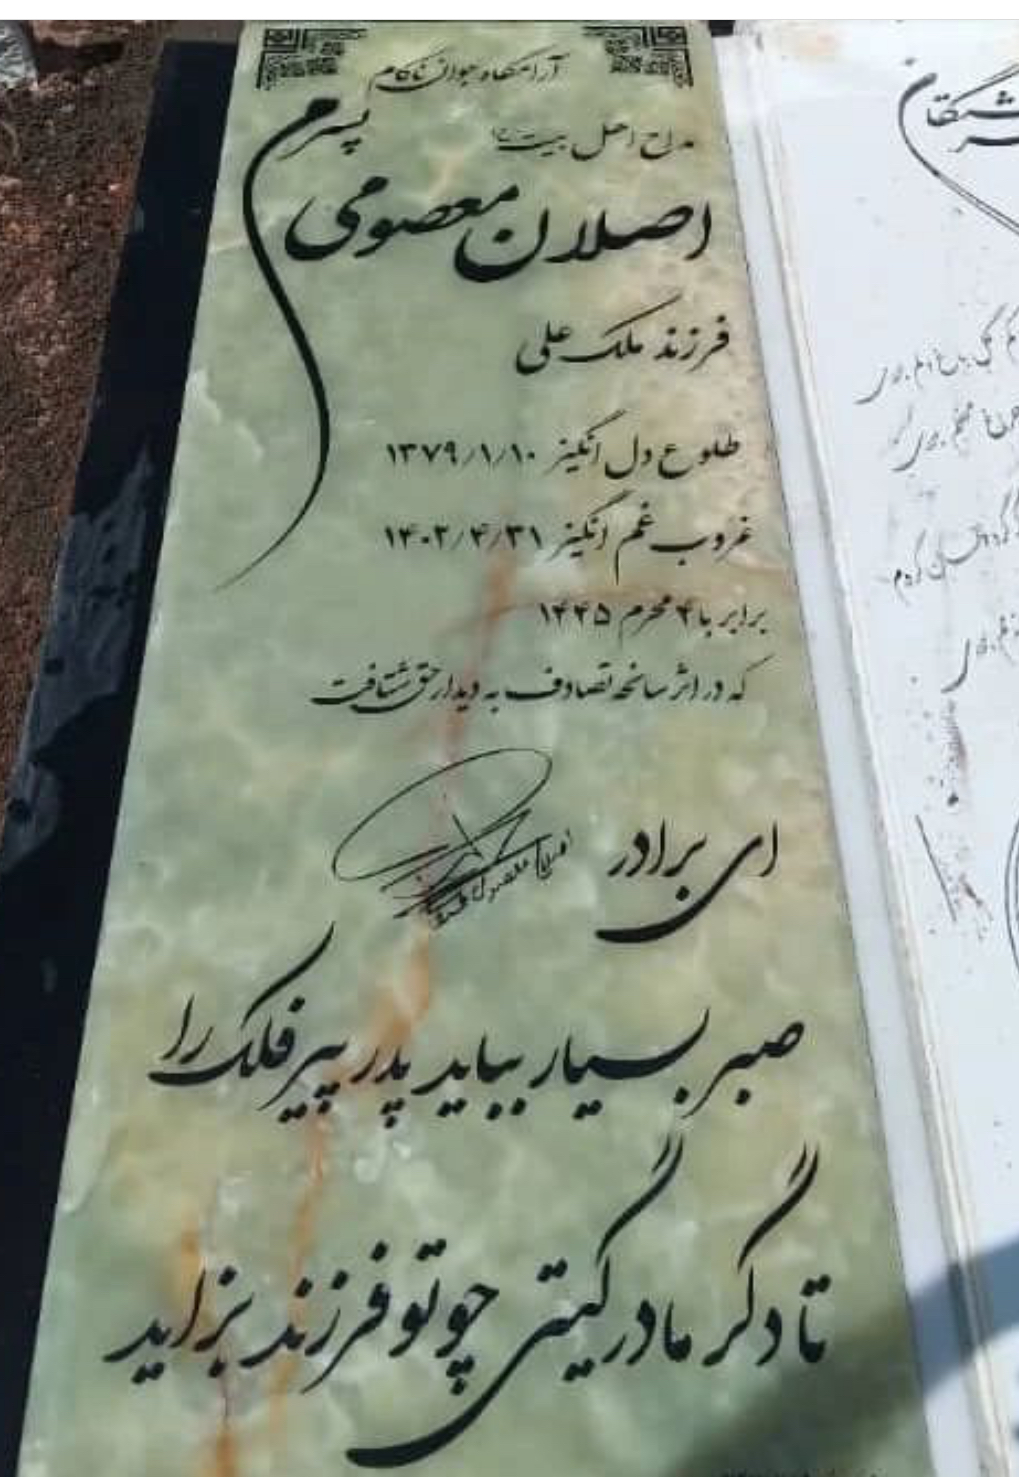 آرامگاه جوان ناکام
مداح اهل بیت (ع)
پسرم
اصلان معصومی
فرزند ملک علی
طلوع دل انگیز ۱۳۷۹/۱/۱۰
غروب غم انگیز ۱۴۰۲/۴/۳۱
برابر با ۴ محرم ۱۴۴۵
که در اثر سانحه تصادف به دیدار حق شتافت
ای برادر
صبر بسیار بباید پدر پیر فلک را
تا دگر مادر گیتی چو تو فرزند بزاید